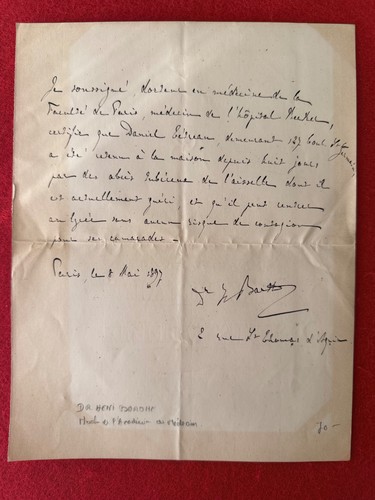 Je soussigné, docteur en médecine de la
Faculté de Paris, médecin de l'hôpital Necker,
certifie que Daniel demeurant 127 boul. St Germain
a été retenu à la maison depuis huit jours
par des abcès tubéreux de l'aisselle dont il
est actuellement guéri, et qu'il peut rentrer
au lycée sans aucun risque de contagion
pour ses camarades.
Paris, le 8 Mai 1897
Dr H Barth
2 rue St Thomas d'Aquin
DR HENI BARTHE
de l'Académie de Médecine
70-